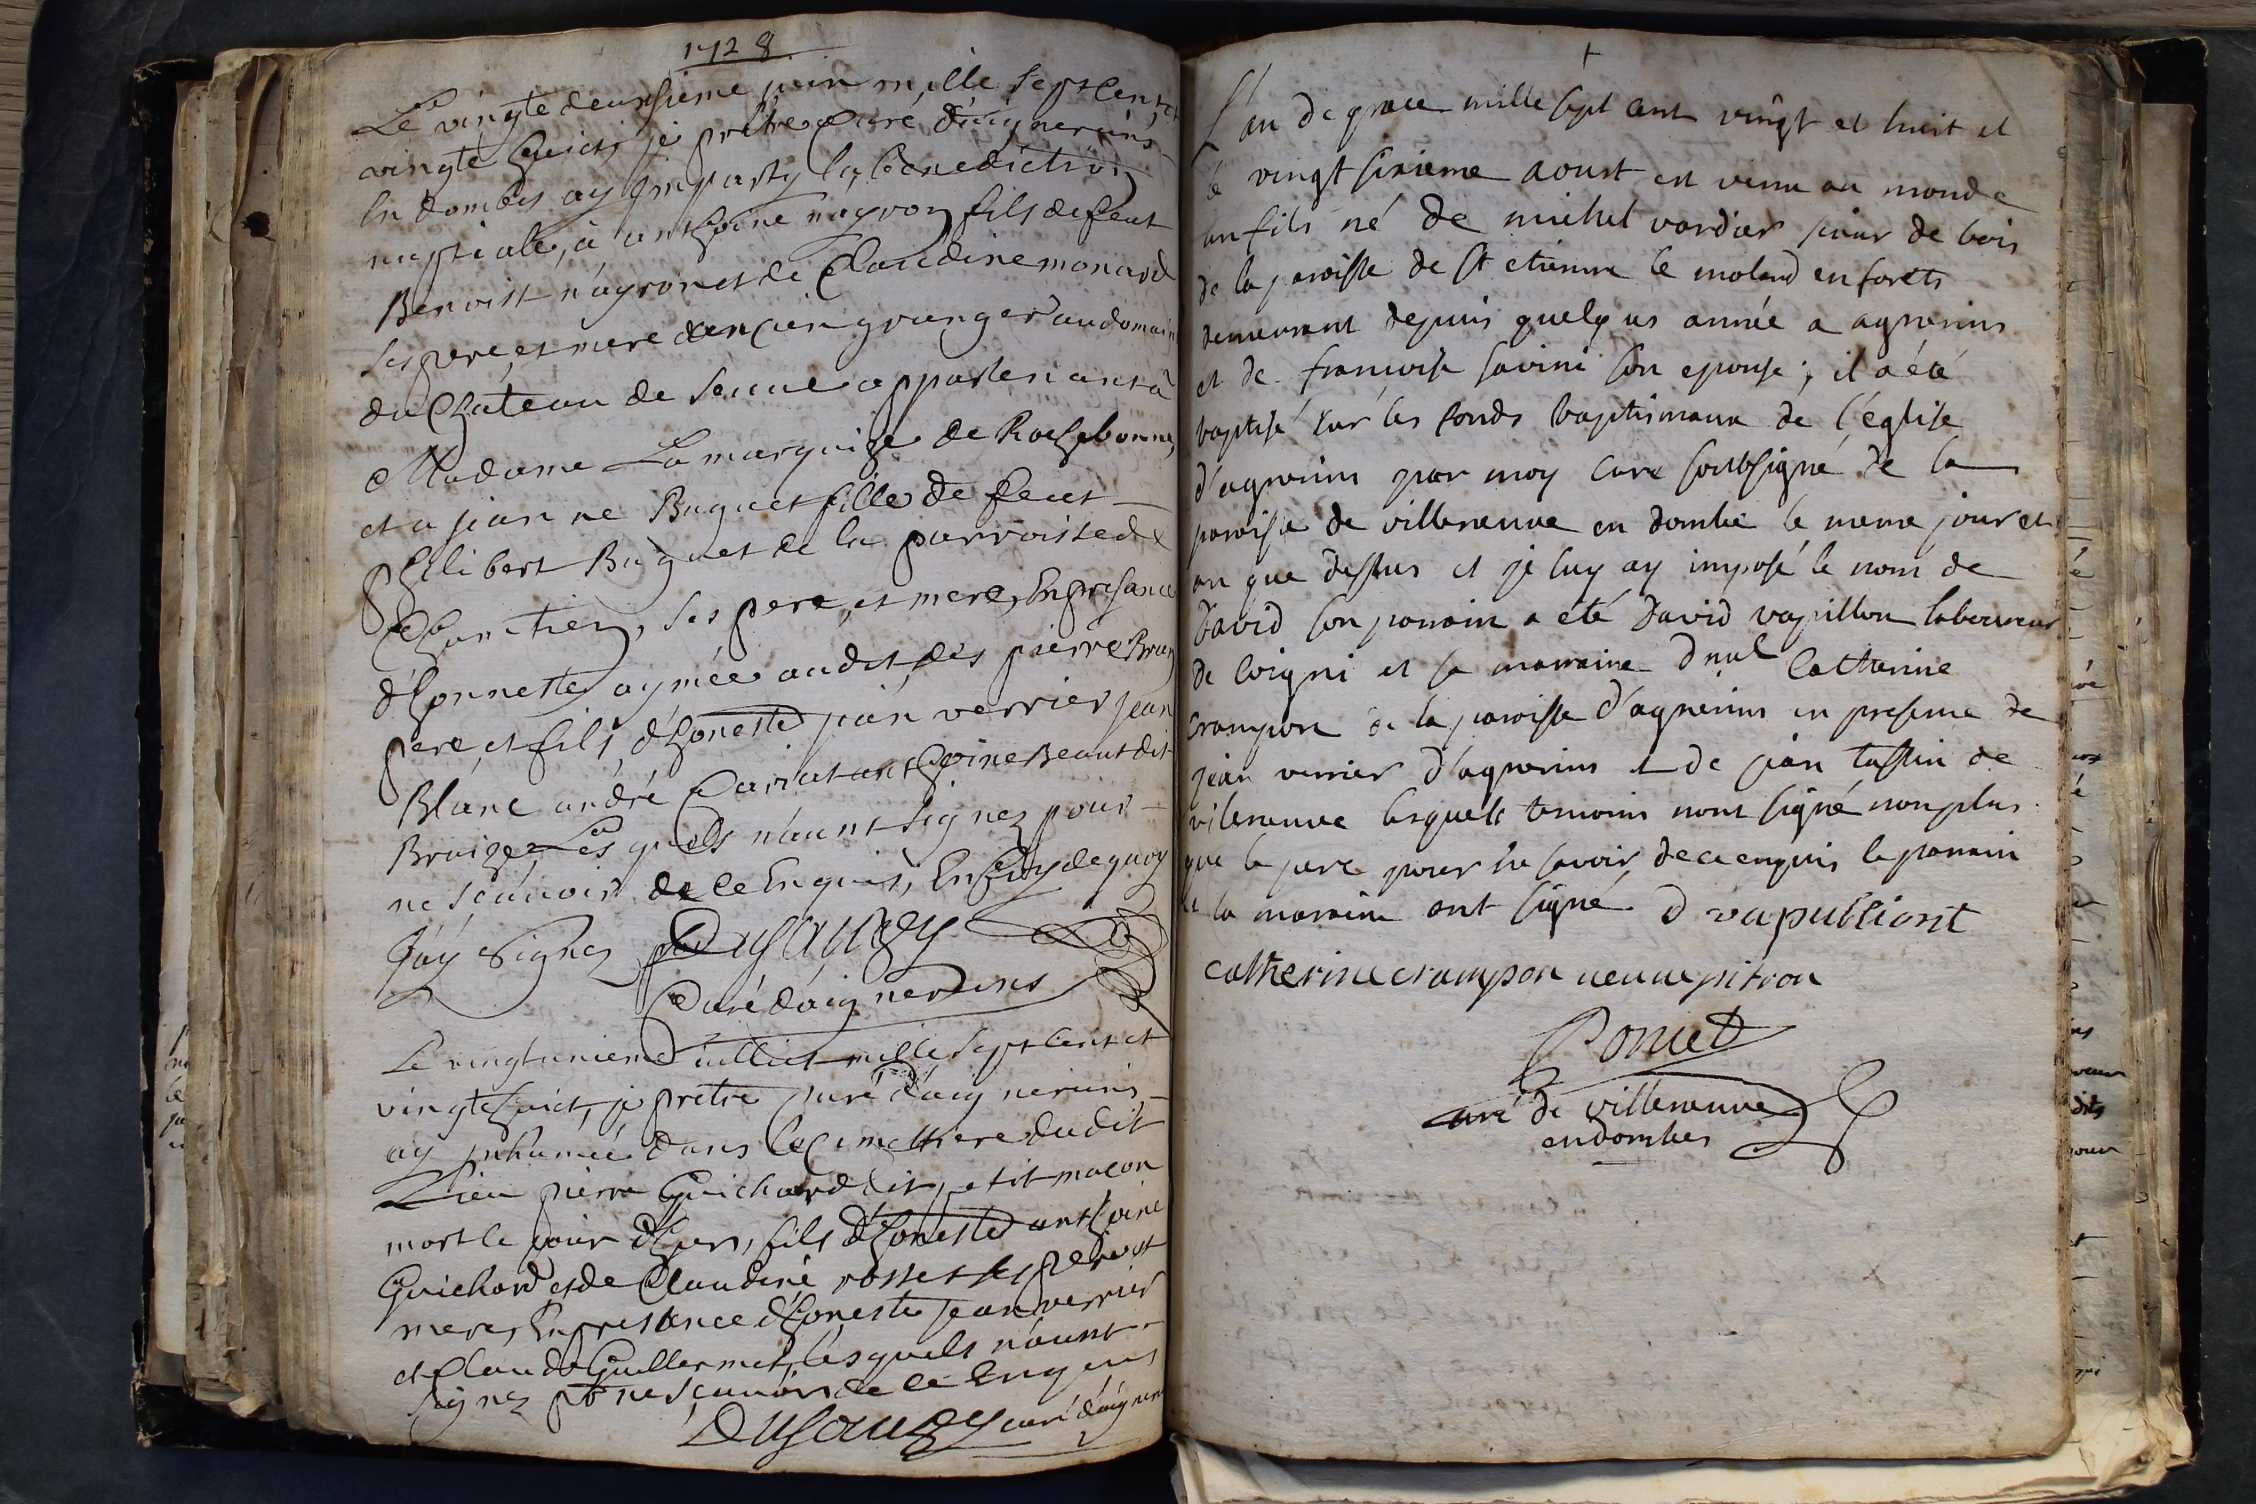 1728
Le vingte deuxsieme juin mille sept cent et
vingte huict, je prêtre Curé d'aignerins
En dombes ay imparty la benediction
nuptiale, à anthoine nayron fils de feut
Benoist nayron et de Claudine monard
ses pere, et mere ancien granger au domaine
du Château de Senue appartenant à
Madame La marquize de Rochebonne,
et a jeanne Buguet fille de feut
philibert Buguet de la parroisse de
Chantrien, ses pere, et mere, En presance
d'honneste aymée audet, des pierre Brun
pere, et fils, d'honeste jean verrier jean
Blanc andré Carriat anthoine Beaut dit
Bruizer Lesquells n'aunt signez pour
ne sçauoir de ce Enquis, En foy de quoy
j'ay signez Dusauzey
Curé d'aignerins
Le vingtunieme iulliet mille sept cent et
vingte huict, je prêtre Curé d'aignerins
ay inhumée dans le Cimettiere dudit
Lieu pierre Guichard dit petit macon
mort le jour d'hyer, fils d'honeste anthoine
Guichard, et de Claudine rosset ses pere et
mere, En presance d'honeste jean verrier
et Claude Guillermet, lesquels n'aunt
signez pr ne sçauoir de ce Enquis
Dusauzey curé d'aigneri
L'an de grace mille sept cent vingt et huit et
le vingt sixieme aoust est venu au monde
un fils né de michel vardier sieur de bois
de la paroisse de st etienne le molard en forets
demeurant depuis quelques année a agnerins
et de francoise savini son epouse; il a été
baptisé sur les fonds baptismaux de l'église
d'agnerins par moy curé soubsigné de la
paroisse de villeneuve en dombe le meme jour et
an que dessus et je luy ay imposé le nom de
David son parrain a été David vapillion laboureur
de loigni et sa marraine dnul Catherine
Crampon de la paroisse d'agnerins en presence de
jean verrier d'agnerins et de jean tassin de
vileneuve lesquels temoins nont signé non plus
que le pere pour ne savoir de ce enquis le parrain
et la marraine ont signé D vapullions
catherine crampon ueuue pitron
Poncet
curé de villeneuve
en dombes